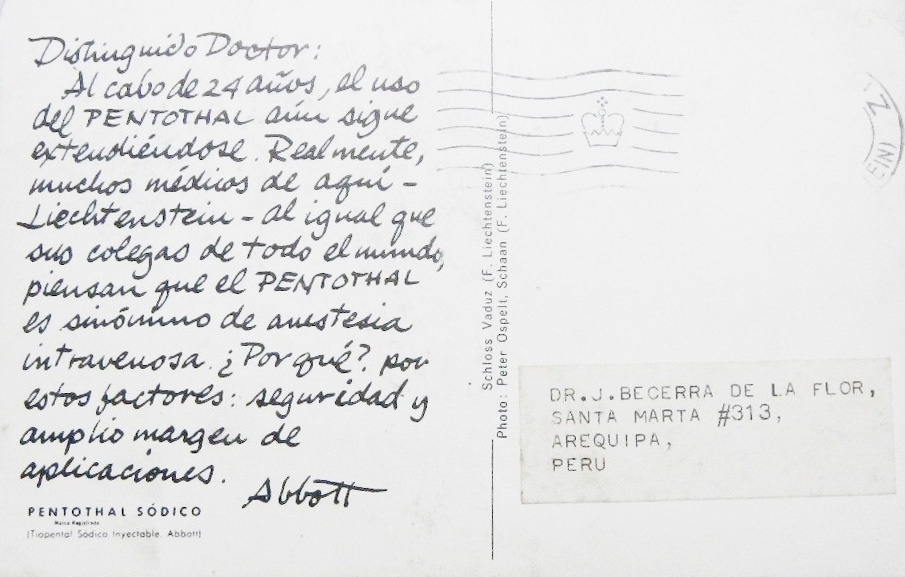 Distinguido Doctor:
Al cabo de 24 años, el uso
del PENTOTHAL aún sigue
extendiéndose. Realmente,
muchos médicos de aquí -
Liechtenstein - al igual que
sus colegas de todo el mundo,
piensan que el PENTOTHAL
es sinónimo de anestesia
intravenosa. ¿Por qué? por
estos factores: seguridad y
amplio margen de
aplicaciones.
Abbott
PENTOTHAL SÓDICO
Marca Registrada
(Tiopental Sódico Inyectable, Abbott)
Schloss Vaduz (F. Liechtenstein)
Photo: Peter Ospelt, Schaan (F. Liechtenstein)
DR.J.BECERRA DE LA FLOR,
SANTA MARTA #313,
AREQUIPA,
PERU